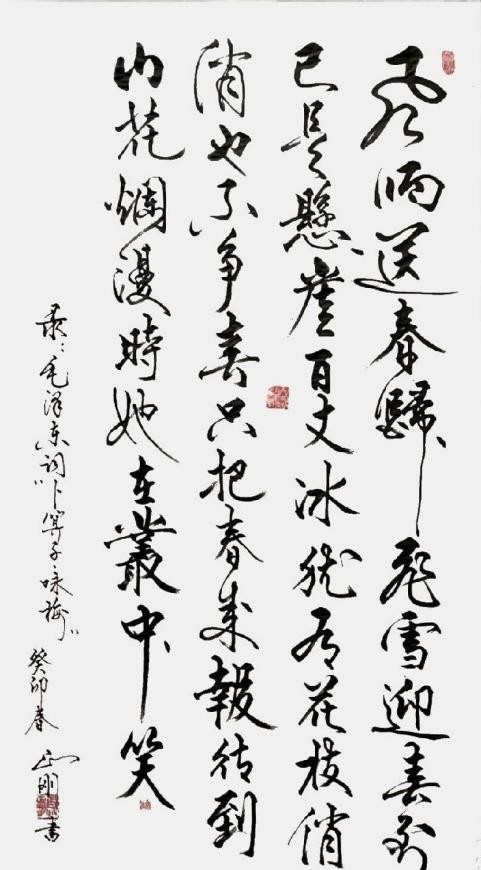 风雨送春歸飛雪迎春到
已是懸崖百丈冰犹有花枝俏
俏也不争春只把春来報待到
山花爛漫時她在叢中笑
录：毛泽东词"卜算子·咏梅"
癸卯春 正刚书